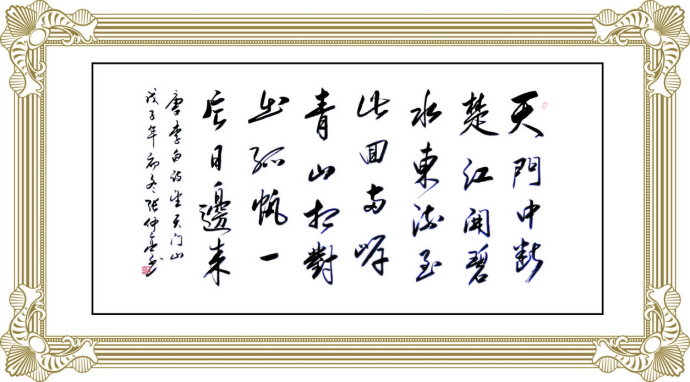 天門中斷
楚江開碧
水東流至
此回兩岸
青山相對
出孤帆一
片日邊來
唐李白詩望天门山
戊子年初冬張仲亭书